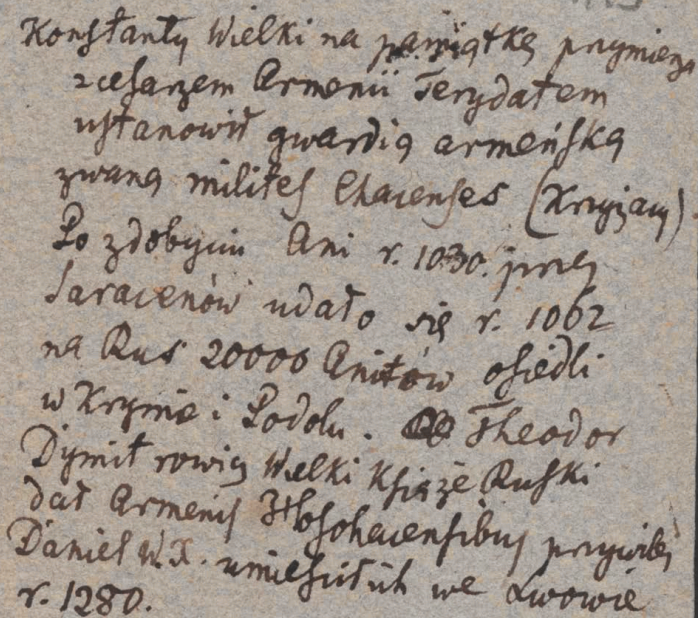 Konstanty Wielki na pamiątkę przymierza
z cesarzem Armenii Terydatem
ustanowił gwardią armeńską
zwaną milites Chacenses (Krzyżacy)
Po zdobyciu Ani r. 1030. przez
Saracenów udało się r. 1062
na Ruś 20000 Anitów osiedli
w Krymie i Podolu. Theodor
Dymitrowicz Wielki Książe Ruski
dał Armenis przywilej
Daniel W. X. umieścił ich we Lwowie
r. 1280.